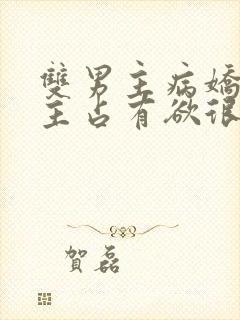 雙男主病嬌
主占有欲很
賀磊